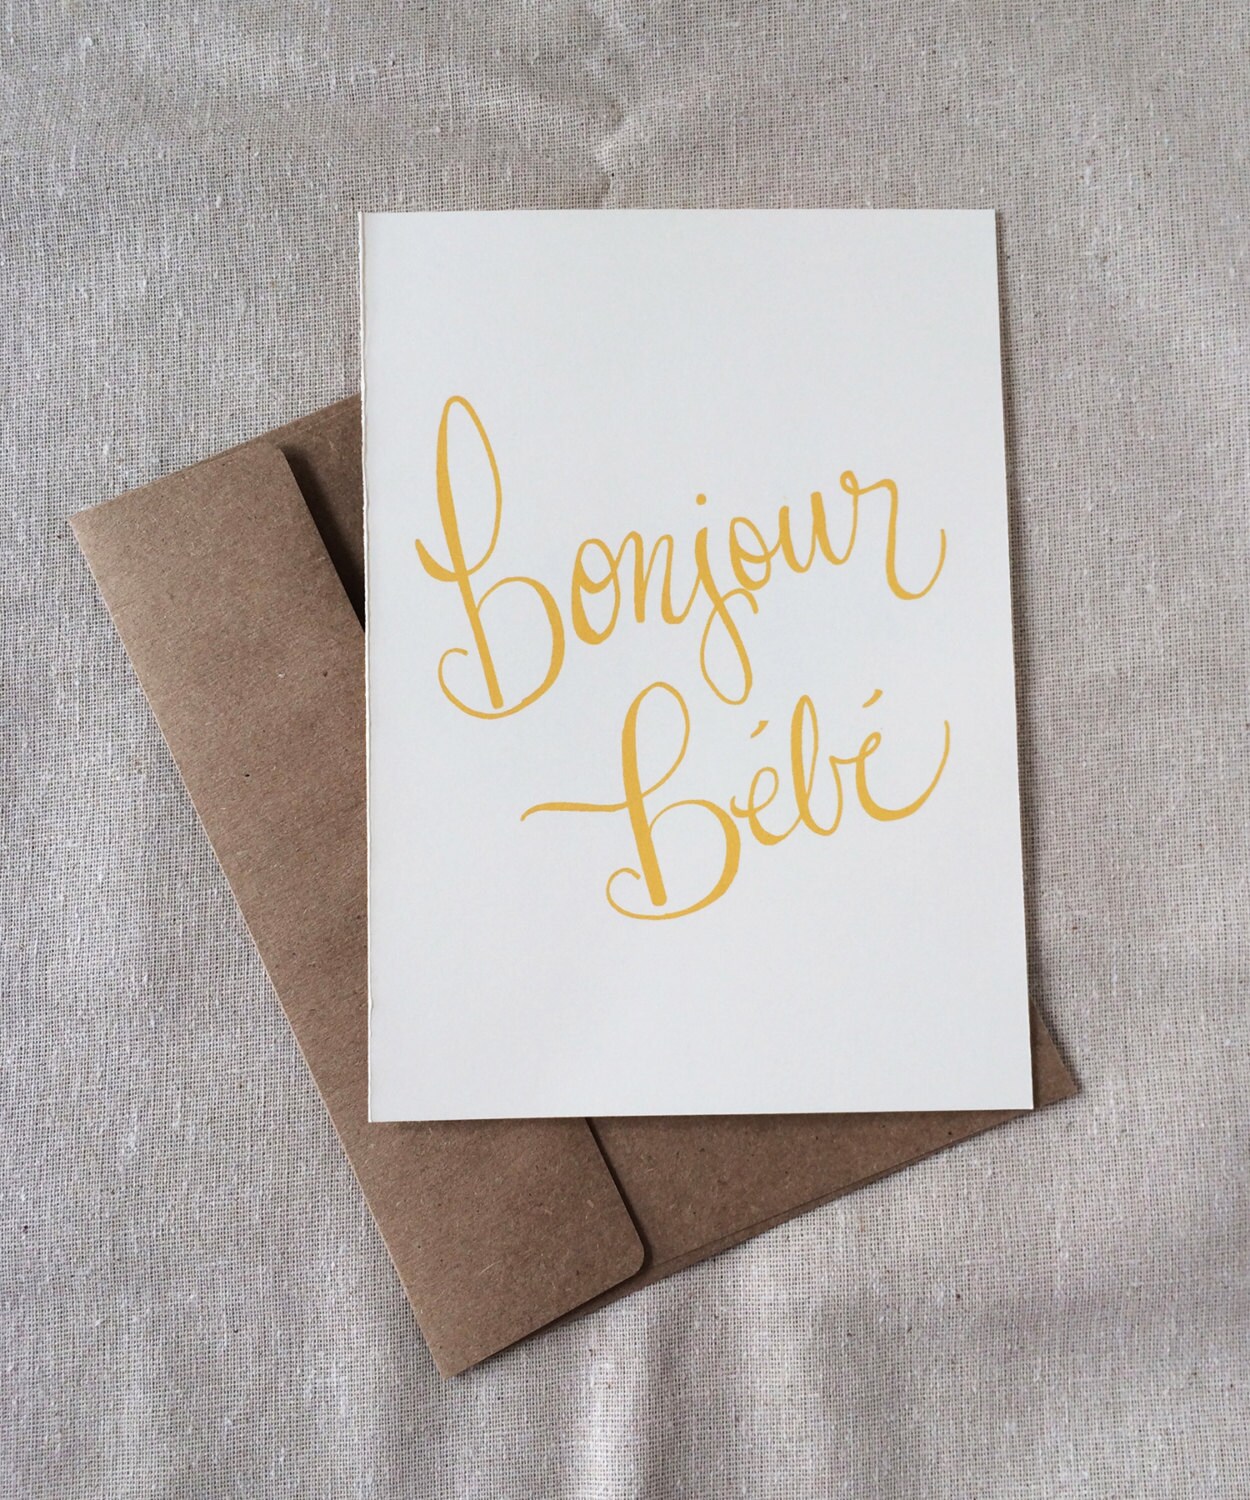 bonjour
bébé